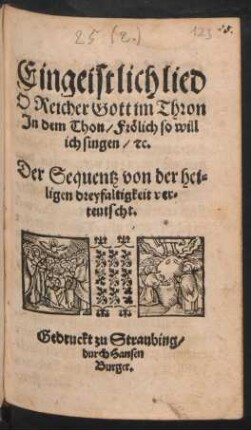 25 (2.)
123
Eingeistlich lied
O Reicher Gott im Thron
In dem Thon / Frölich so will
ich singen / ⁊c.
Der Sequentz von der hei-
ligen dreyfaltigkeit ver-
teutscht.
Gedruckt zu Straubing /
durch Hansen
Burger.